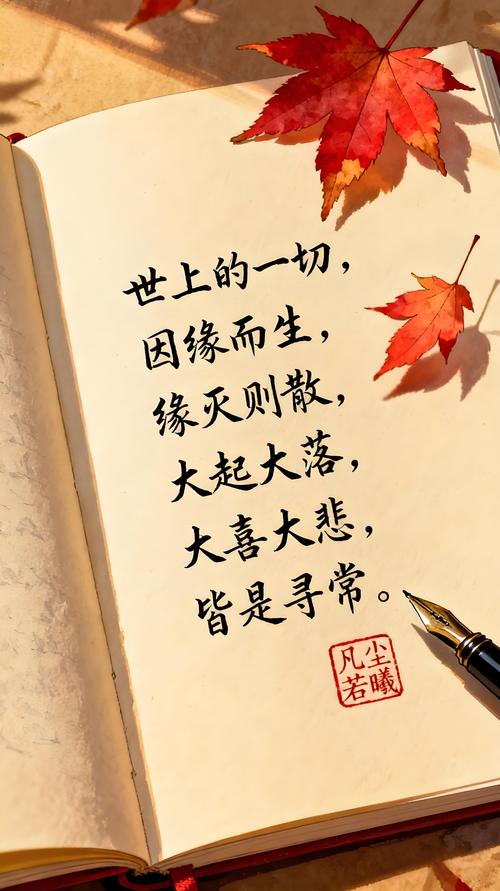 世上的一切，
因缘而生，
缘灭则散，
大起大落，
大喜大悲，
皆是寻常。
凡尘
若曦